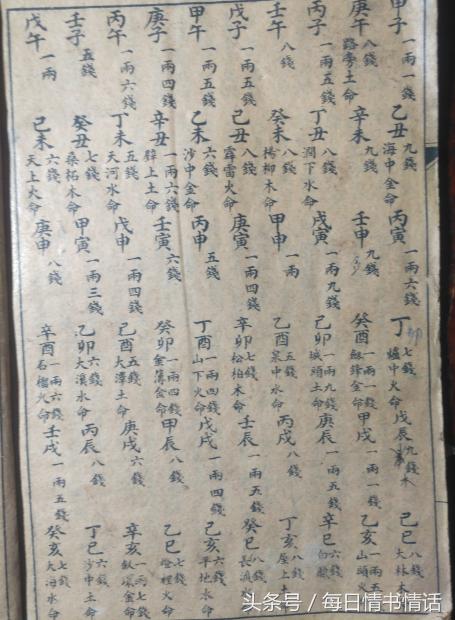 甲子 一兩一錢 乙丑 九錢 海中金命 丙寅 一兩六錢 丁卯 七錢 爐中火命 戊辰 九錢 木 己巳 八錢 大林木
庚午 八錢 路旁土命 辛未 九錢 壬申 九錢 癸酉 一兩一錢 劍鋒金命 甲戌 一兩一錢 乙亥 一兩五 山頭火
丙子 一兩五錢 丁丑 八錢 澗下水命 戊寅 一兩九錢 己卯 一兩九錢 城頭土命 庚辰 一兩五錢 辛巳 六錢 白臘
壬午 八錢 癸未 八錢 楊柳木命 甲申 一兩 乙酉 五錢 泉中水命 丙戌 八錢 丁亥 八錢 屋上土
戊子 一兩五錢 己丑 八錢 霹雷火命 庚寅 一兩四錢 辛卯 七錢 松柏木命 壬辰 一兩五錢 癸巳 八錢 長流
甲午 一兩五錢 乙未 六錢 沙中金命 丙申 五錢 丁酉 一兩四錢 山下火命 戊戌 一兩四錢 己亥 六錢 平地木命
庚子 一兩四錢 辛丑 一兩六錢 壁上土命 壬寅 六錢 癸卯 一兩四錢 金簿金命 甲辰 八錢 乙巳 七錢 燈火命
丙午 一兩六錢 丁未 五錢 天河水命 戊申 一兩四錢 己酉 五錢 大澤土命 庚戌 六錢 辛亥 一兩七錢 釵環金命
壬子 五錢 癸丑 七錢 桑柘木命 甲寅 一兩三錢 乙卯 六錢 大溪水命 丙辰 八錢 丁巳 六錢 沙中土命
戊午 一兩 己未 六錢 天上火命 庚申 八錢 辛酉 一兩六錢 石榴火命 壬戌 一兩五錢 癸亥 七錢 大海水命
头条号 / 每日情书情话